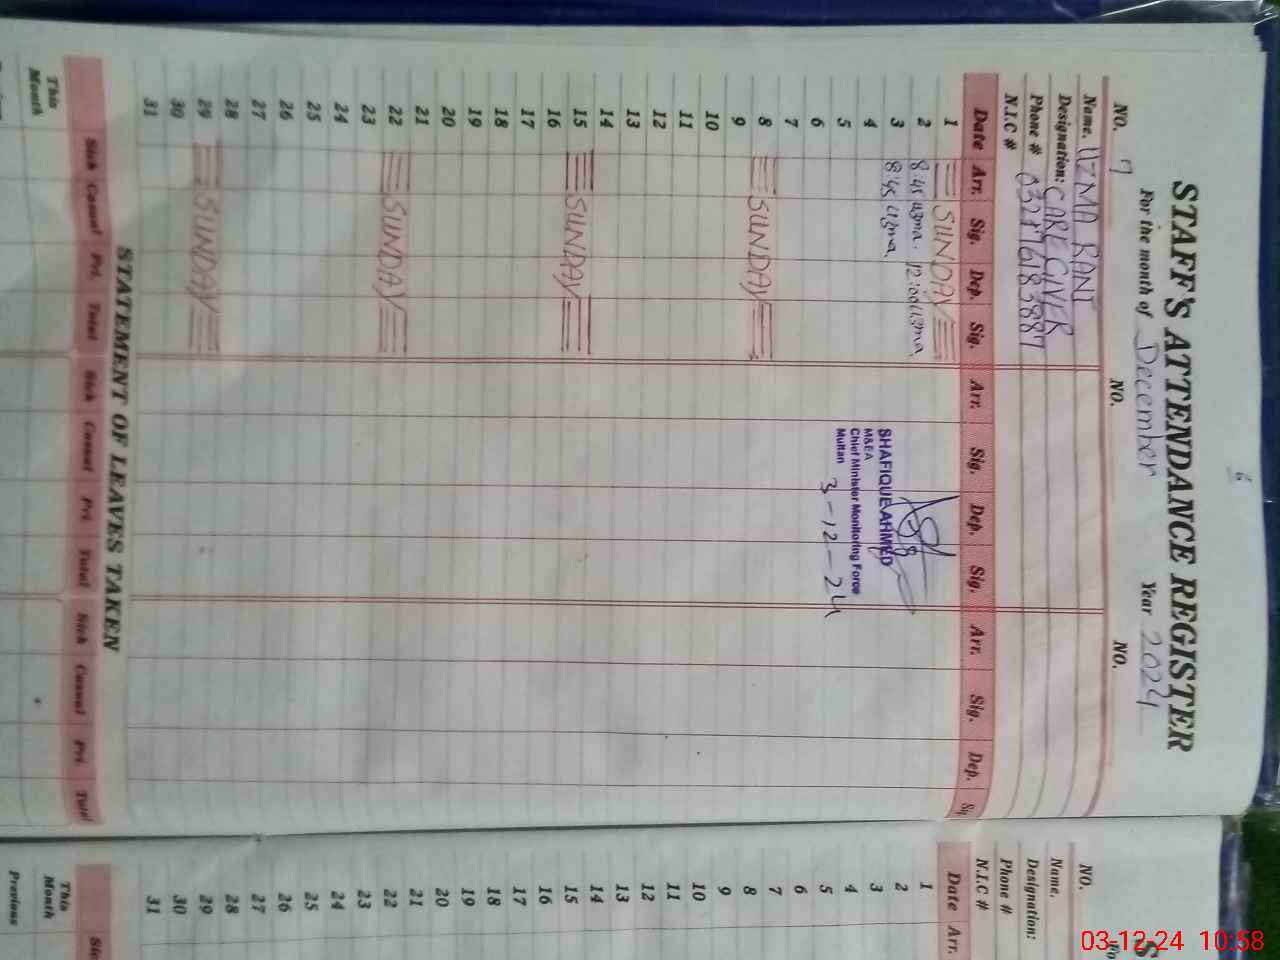 6
STAFF'S ATTENDANCE REGISTER
For the month of December Year 2024
NO. 7 NO. NO.
Name. UZMA RANI
Designation: CAREGIVER
Phone #
N.I.C #
Date Arr. Sig. Dep. Sig. Arr. Sig. Dep. Sig. Arr. Sig. Dep. Sig.
1 SUNDAY
2 8:45 uzma. 12:00 uzma
3 8:45 uzma
4
5
6
7
8 SUNDAY
9
10
11
12
13
14
15 SUNDAY
16
17
18
19
20
21
22 SUNDAY
23
24
25
26
27
28
29 SUNDAY
30
31
SHAFIQUE AHMED
M&EA
Chief Minister Monitoring Force
Multan
3-12-24
STATEMENT OF LEAVES TAKEN
Sick Casual Pri. Total Sick Casual Pri Total Sick Casual Pri Total
This Month
NO.
Name.
Designation:
Phone #
N.I.C #
Date Arr.
1
2
3
4
5
6
7
8
9
10
11
12
13
14
15
16
17
18
19
20
21
22
23
24
25
26
27
28
29
30
31
This Month
Previous
03-12-24 10:58